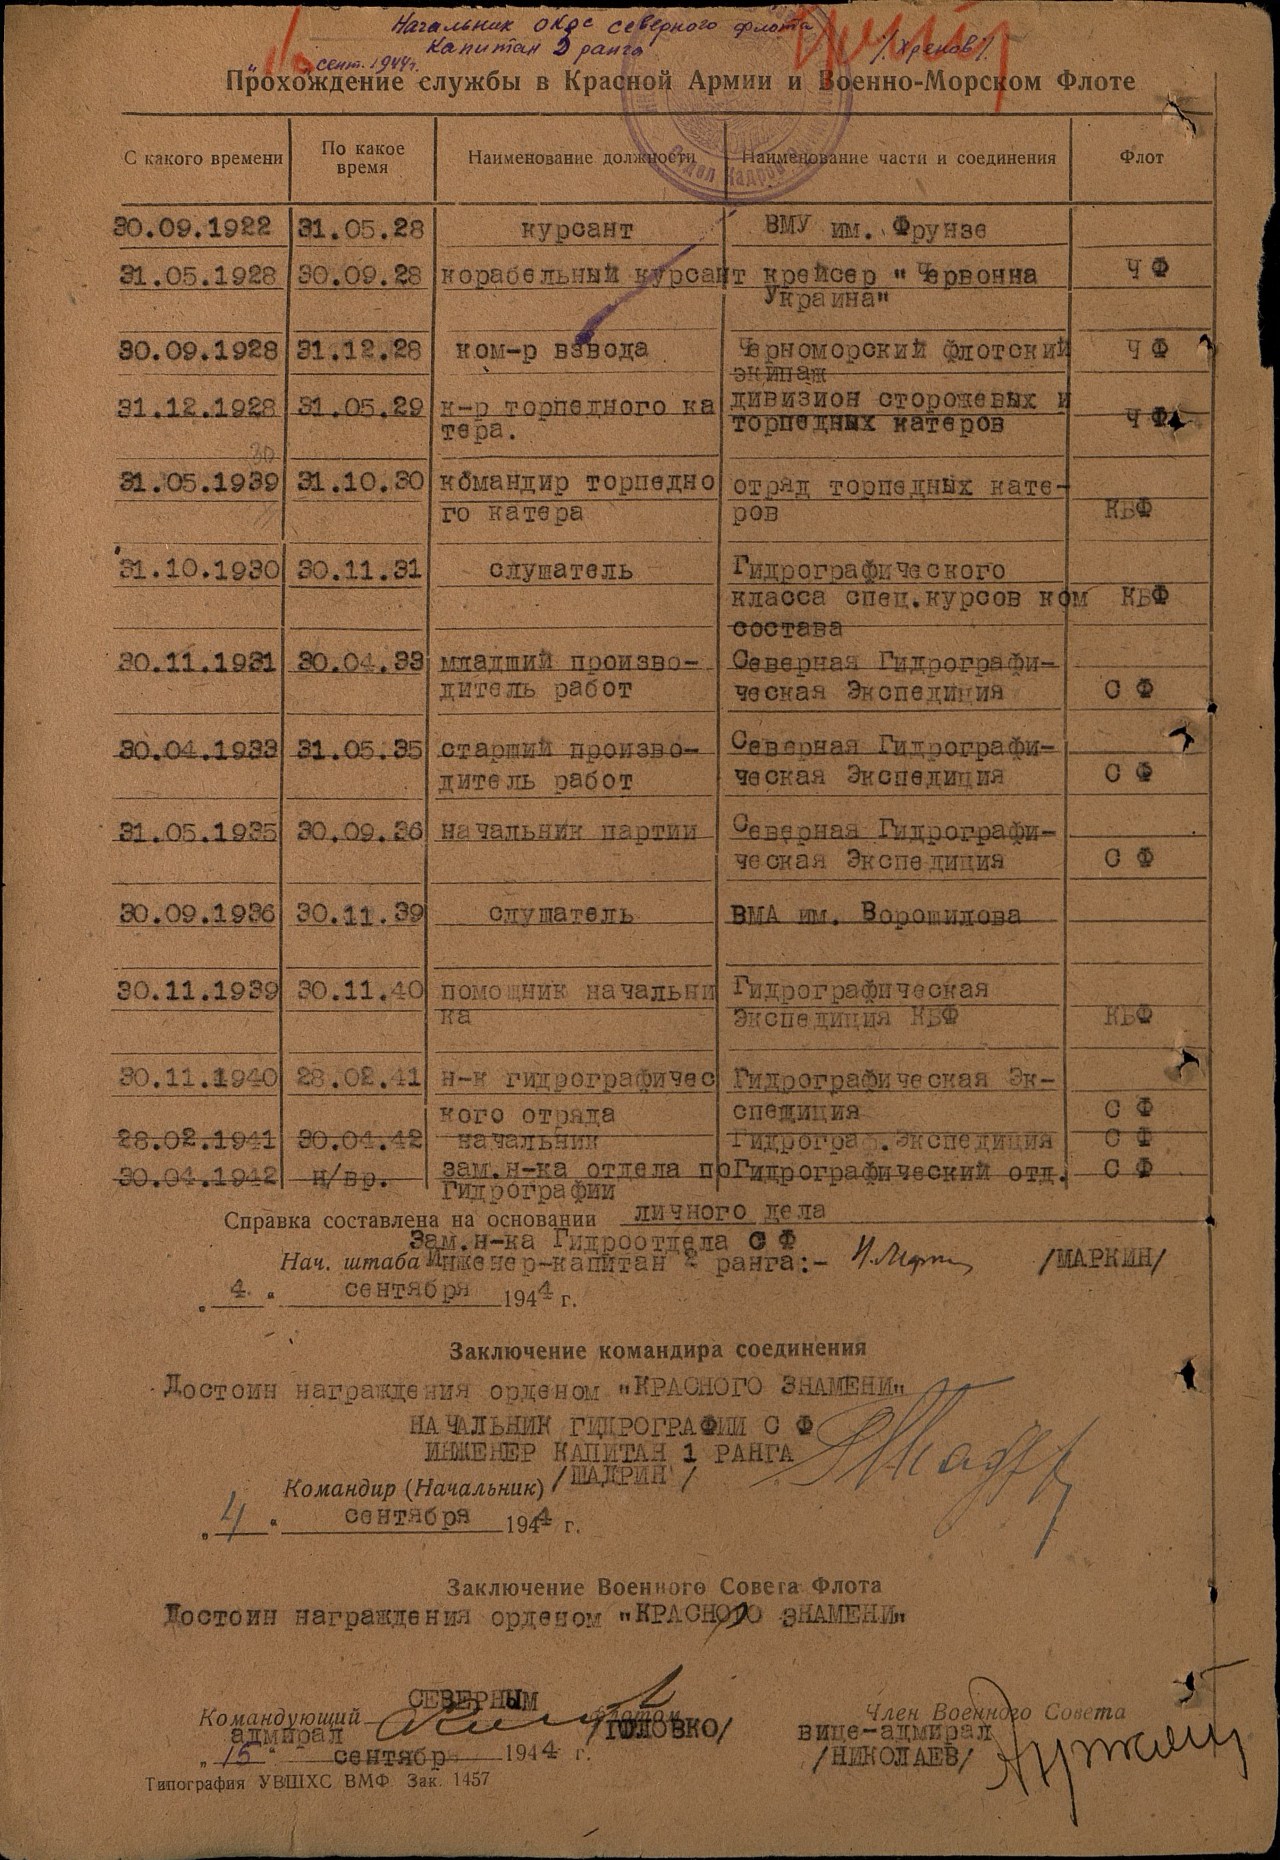 Начальник ОКОС Северного флота
Капитан 2 ранга /Хренов/.
сент. 1944г.
Прохождение службы в Красной Армии и Военно-Морском Флоте
С какого времени По какое время Наименование должности Наименование части и соединения Флот
30.09.1922 31.05.28 курсант ВМУ им. Фрунзе
31.05.1928 30.09.28 корабельный курсант крейсер "Червонна Ч Ф
Украина"
30.09.1928 31.12.28 ком-р взвода Черноморский флотский Ч Ф
экипаж
31.12.1928 31.05.29 к-р торпедного ка дивизион сторожевых и
тера. торпедных катеров Ч Ф
30
31.05.1939 31.10.30 командир торпедно отряд торпедных кате-
го катера ров КБФ
31.10.1930 30.11.31 слушатель Гидрографического
класса спец.курсов ком КБФ
состава
30.11.1931 30.04.33 младший произво- Северная Гидрографи-
дитель работ ческая Экспедиция С Ф
30.04.1933 31.05.35 старший произво- Северная Гидрографи-
дитель работ ческая Экспедиция С Ф
31.05.1935 30.09.36 начальник партии Северная Гидрографи-
ческая Экспедиция С Ф
30.09.1936 30.11.39 слушатель ВМА им. Ворошилова
30.11.1939 30.11.40 помощник начальни Гидрографическая
ка Экспедиция КБФ КБФ
30.11.1940 28.02.41 н-к гидрографичес Гидрографическая Эк-
кого отряда спедиция С Ф
28.02.1941 30.04.42 начальник Гидрограф.Экспедиция С Ф
30.04.1942 н/вр. зам.н-ка отдела по Гидрографический отд. С Ф
Гидрографии
Справка составлена на основании личного дела
Зам.н-ка Гидроотдела С Ф
Нач. штаба Инженер-капитан 2 ранга:- /МАРКИН/
„ 4 " сентября 1944 г.
Заключение командира соединения
Достоин награждения орденом "КРАСНОГО ЗНАМЕНИ"
НАЧАЛЬНИК ГИДРОГРАФИИ С Ф
ИНЖЕНЕР КАПИТАН 1 РАНГА
/ШАДРИН/
Командир (Начальник)
„ 4 " сентября 1944 г.
Заключение Военного Совета Флота
Достоин награждения орденом "КРАСНОГО ЗНАМЕНИ"
СЕВЕРНЫМ
Командующий флотом Член Военного Совета
адмирал /ГОЛОВКО/ вице-адмирал
„ 15 " сентября 1944 г. /НИКОЛАЕВ/
Типография УВШХС ВМФ Зак. 1457